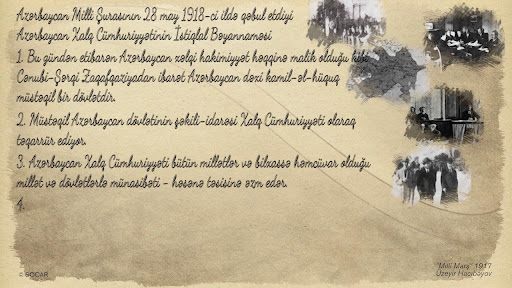 Azərbaycan Milli Şurasının 28 may 1918-ci ildə qəbul etdiyi
Azərbaycan Xalq Cümhuriyyətinin İstiqlal Bəyannaməsi
1. Bu gündən etibarən Azərbaycan xalqı hakimiyyət həqqinə malik olduğu kibi
Cənubi-Şərqi Zaqafqaziyadan ibarət Azərbaycan dəxi kamil-əl-hüquq
müstəqil bir dövlətdir.
2. Müstəqil Azərbaycan dövlətinin şəkili-idarəsi Xalq Cümhuriyyəti olaraq
təqərrür ediyor.
3. Azərbaycan Xalq Cümhuriyyəti bütün millətlər və bilxassə həmcüvar olduğu
millət və dövlətlərlə münasibəti - həsənə təsisinə əzm edər.
4.
© SOCAR
"Milli Marş" 1917
Üzeyir Hacıbəyov